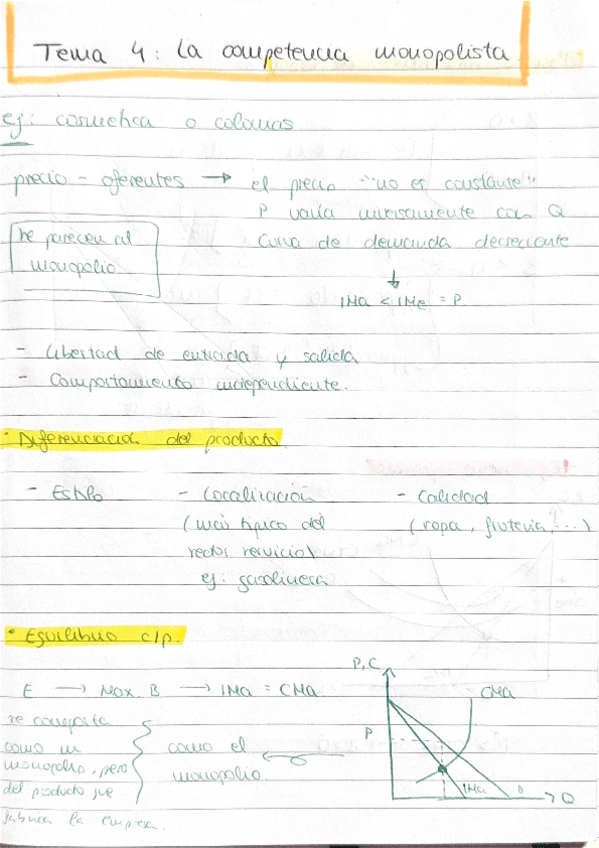 Tema 4: La competencia monopolista
ej: cosmética o colonias
precio - oferentes → el precio "no es constante"
P varía inversamente con Q
Curva de demanda decreciente
se parecen al
monopolio
↓
IMa < IMe = P.
- Libertad de entrada y salida
- Comportamiento independiente.
· Diferenciación del producto
- Estilo
- Localización
(más típico del
sector servicio)
ej: gasolinera
- Calidad
(ropa, frutería, ...)
· Equilibrio c/p.
E → Max. B → IMa = CMa
se comporta
como un
monopolio, pero
del producto que
fabrica la empresa.
como el
monopolio
P, C
CMa
P
IMa
D
Q